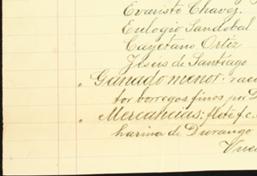 Evaristo Chavez.
Eulogio Sandobal
Cayetano Ortiz
Jesus de Santiago
" Ganado menor: race
tor borregos finos pr D
" Mercancias: flete f. c.
harina de Durango